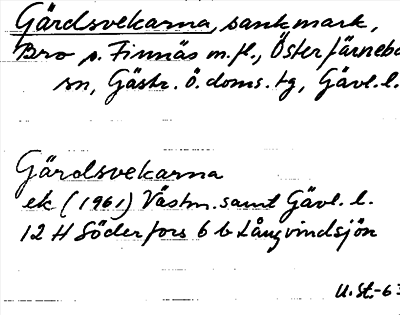 Gärdsvekarna, sankmark,
Bro s. Finnäs m.fl., Österfärnebo
sn, Gästr. Ö. doms. tg, Gävl. l.
Gärdsvekarna
ek (1961) Västm. samt Gävl. l.
12 H Söderfors 6 b Långvindsjön
U.St.-63